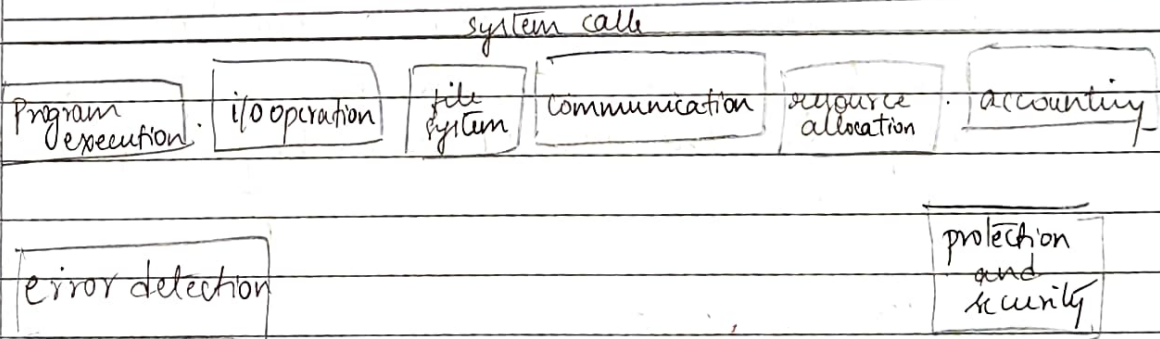 system calls
Program
execution.
i/o operation
file
system
communication
resource
allocation
accounting
error detection
protection
and
security